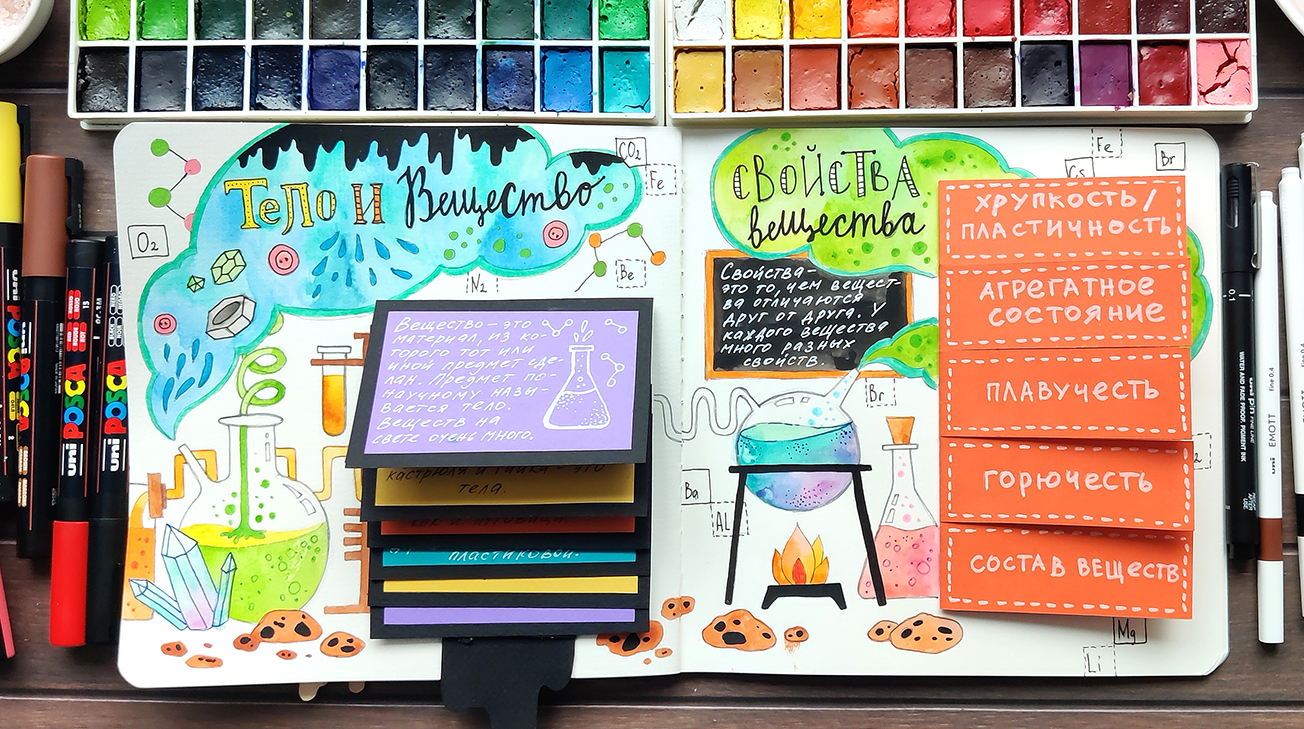 Тело и Вещество
CO₂
Fe
O₂
Be
N₂
Вещество — это
материал, из ко-
торого тот или
иной предмет сде-
лан. Предмет по-
научному назы
вается тело
Веществ на
свете очень много.
кастрюля и
тела.
пластиковой.
Свойства
вещества
Свойства-
это то, чем вещест-
ва отличаются
друг от друга. У
каждого вещества
много разных
свойств.
Fe
Cs
Br
Br
Ba
AL
Mg
Li
ХРУПКОСТЬ/
ПЛАСТИЧНОСТЬ
АГРЕГАТНОЕ
СОСТОЯНИЕ
ПЛАВУЧЕСТЬ
ГОРЮЧЕСТЬ
СОСТАВ ВЕЩЕСТВ
uni POSCA
uni POSCA
POSCA
uni pin fine line
WATER AND FADE PROOF PIGMENT INK
0.1
uni EMOTT
fine 0.4